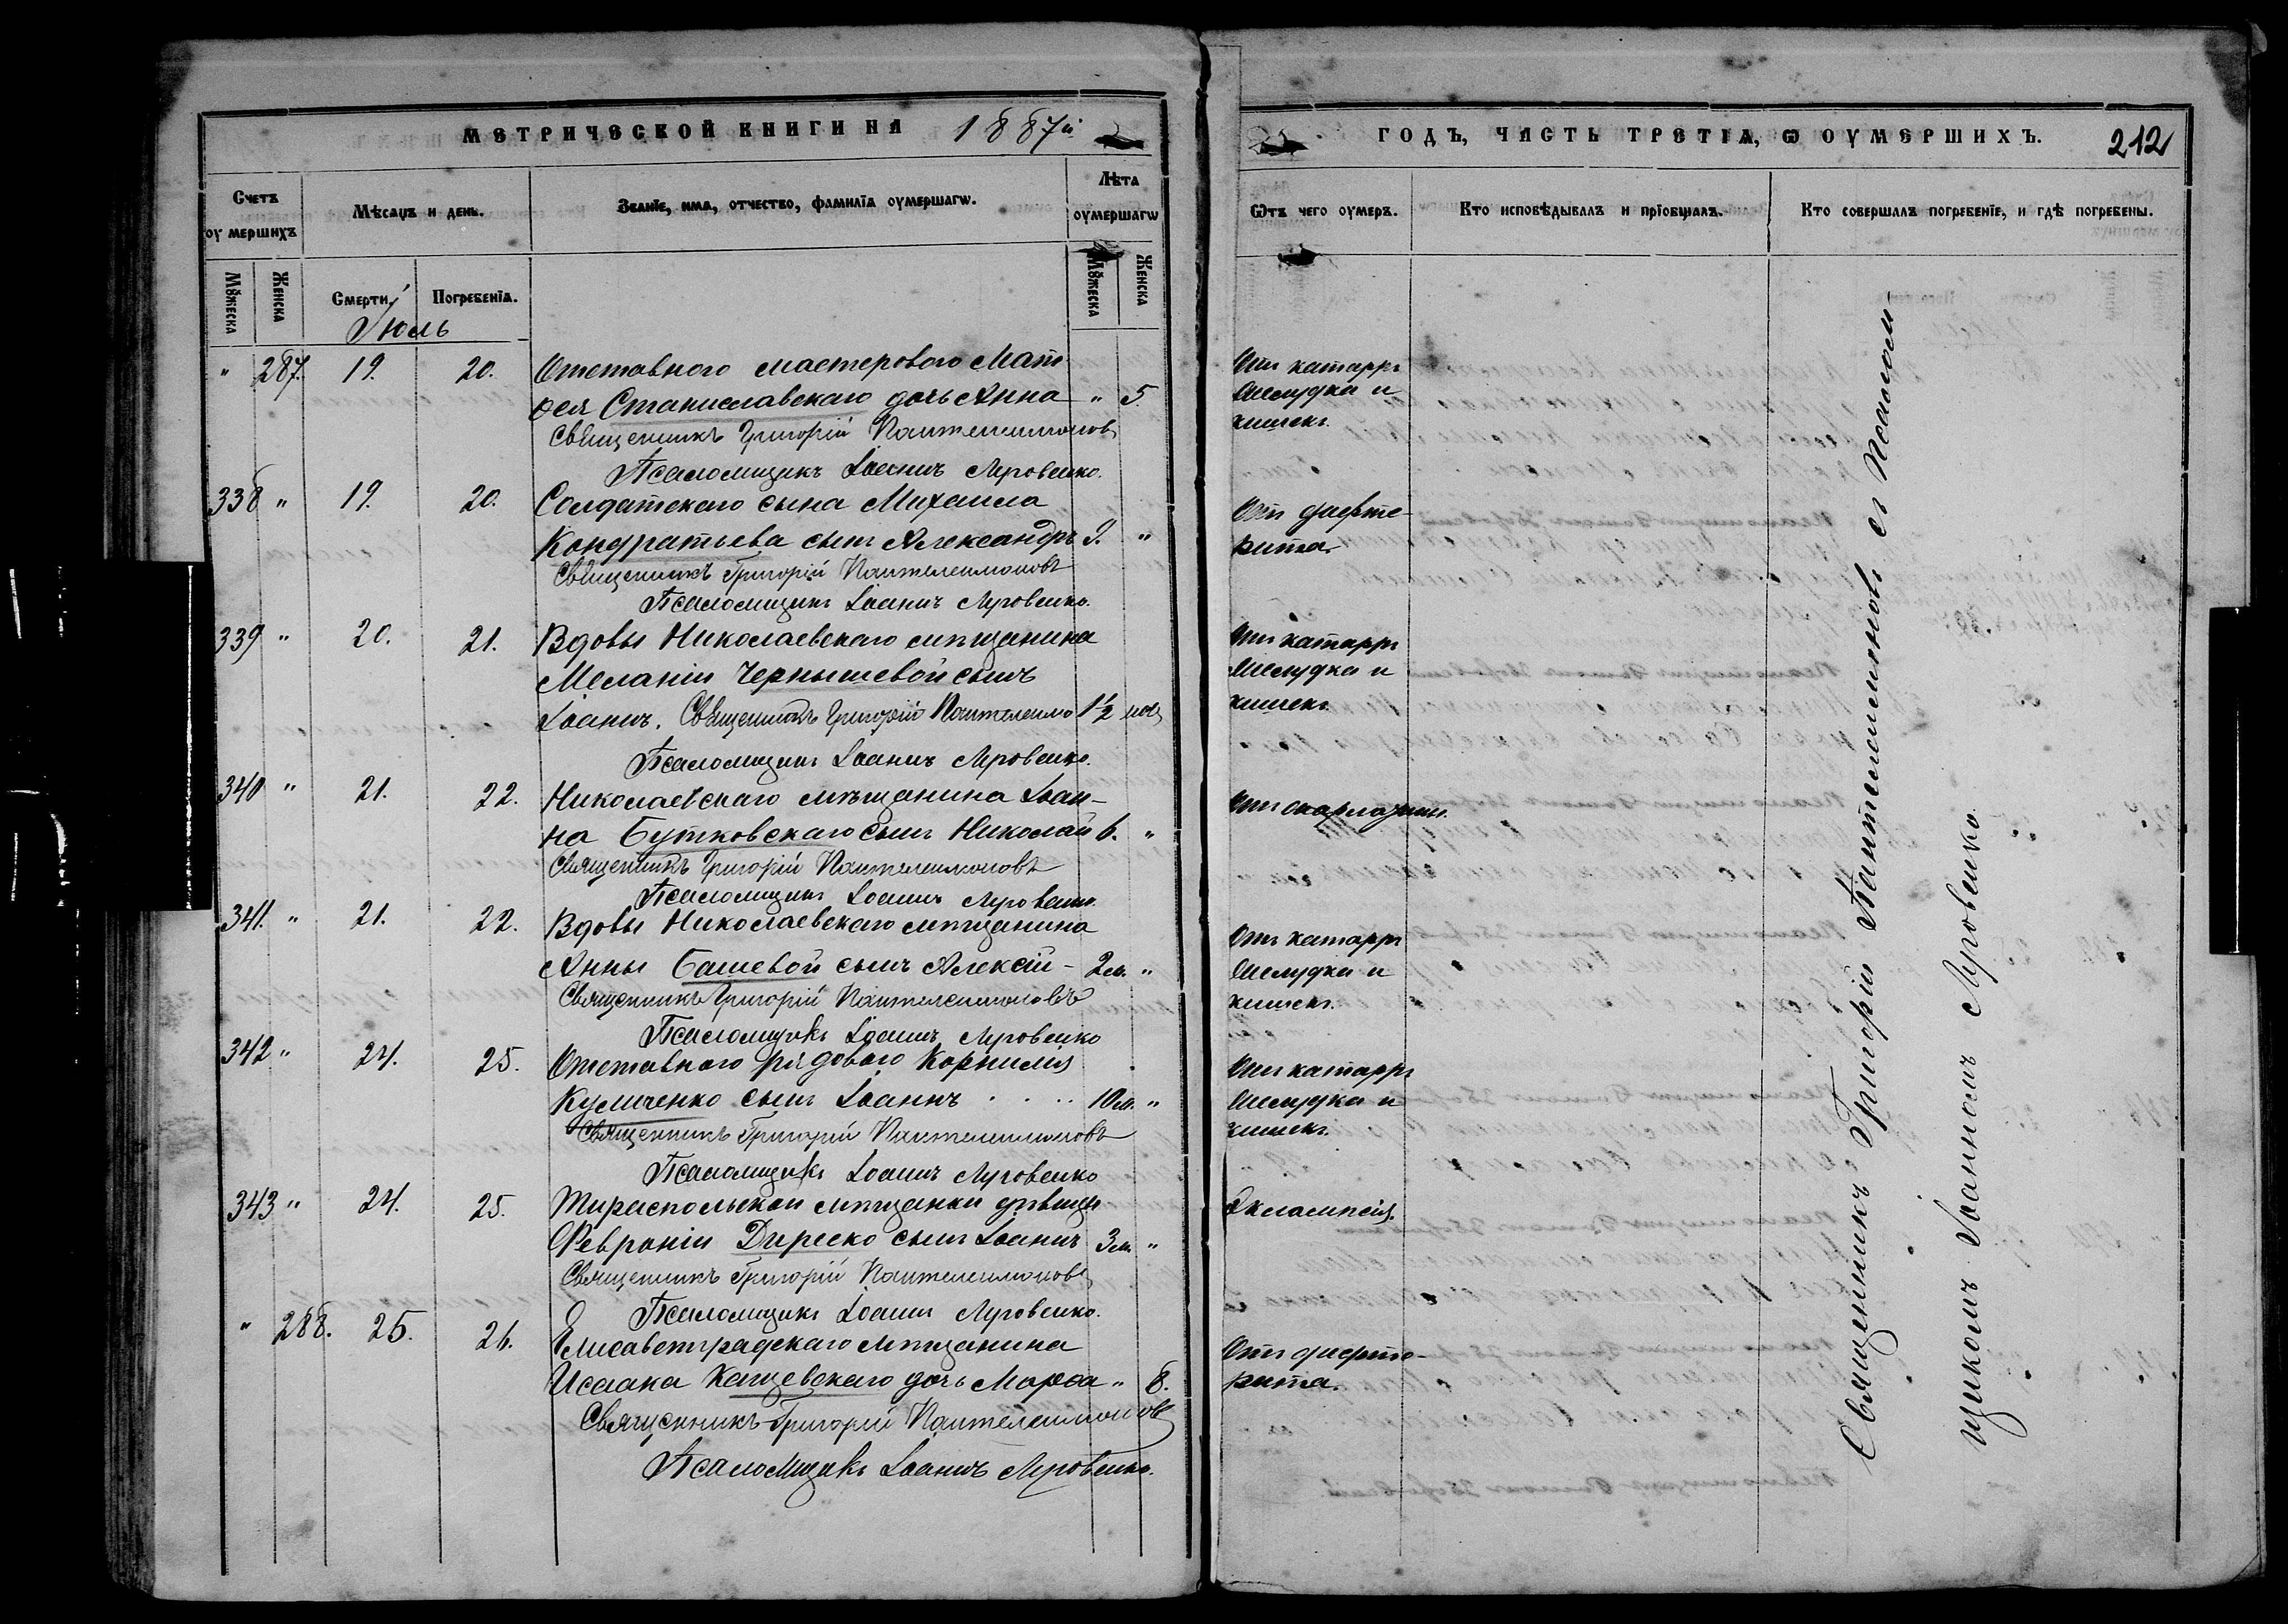 МЕТРИЧЕСКОЙ КНИГИ НА 1887й
ГОДЪ, ЧАСТЬ ТРЕТІѦ, Ѡ ОУМЕРШИХЪ. 212
Счетъ оумершихъ
Мѣсяцъ и день.
Званїе, имѧ, отчество, фамилїѧ оумершагѡ.
Лѣта оумершагѡ
Ѿтъ чего оумеръ.
Кто исповѣдывалъ и прїобщалъ.
Кто совершалъ погребенїе, и гдѣ погребены.
Мꙋжеска
Женска
Смерти.
Погребенїѧ.
Мꙋжеска
Женска
Іюль
" 287. 19. 20. Отставного мастерового Мат
ѳея Станиславскаго дочь Анна " 5.
Отъ катарра
желудка и
кишекъ.
Священникъ Григорій Пантелеимоновъ
Псаломщикъ Іоаннъ Луговенко.
338 " 19. 20. Солдатскаго сына Михаила
Кондратьева сынъ Александръ "
Отъ дифте-
рита.
Священникъ Григорій Пантелеимоновъ
Псаломщикъ Іоаннъ Луговенко.
339 " 20. 21. Вдовы Николаевскаго мѣщанина
Меланіи Чернышевой сынъ
Іоаннъ. Священникъ Григорій Пантелеимо 1½
Отъ катарра
желудка и
кишекъ.
Псаломщикъ Іоаннъ Луговенко.
340 " 21. 22. Николаевскаго мѣщанина Іоан-
на Бутковскаго сынъ Николай 6. "
Отъ скарлатины.
Священникъ Григорій Пантелеимоновъ
Псаломщикъ Іоаннъ Луговенко.
341. " 21. 22. Вдовы Николаевскаго мѣщанина
Анны Башевой сынъ Алексій - 2м. "
Отъ катарра
желудка и
кишекъ.
Священникъ Григорій Пантелеимоновъ
Псаломщикъ Іоаннъ Луговенко
342 " 24. 25. Отставного рядового Корнилія
Куличенко сынъ Іоаннъ . . . . 10м. "
Отъ катарра
желудка и
кишекъ.
Священникъ Григорій Пантелеимоновъ
Псаломщикъ Іоаннъ Луговенко
343 " 24. 25. Тираспольской мѣщанки дѣвицы
Февроніи Диреско сынъ Іоаннъ 3м. "
Эклампсія.
Священникъ Григорій Пантелеимоновъ
Псаломщикъ Іоаннъ Луговенко.
" 288. 25. 26. Елисаветградскаго мѣщанина
Исаака Кащевскаго дочь Марѳа " 8.
Отъ дифте-
рита.
Священникъ Григорій Пантелеимоновъ
Псаломщикъ Іоаннъ Луговенко.
Священникъ Григорій Пантелеимоновъ съ Псалом-
щикомъ Іоанномъ Луговенко